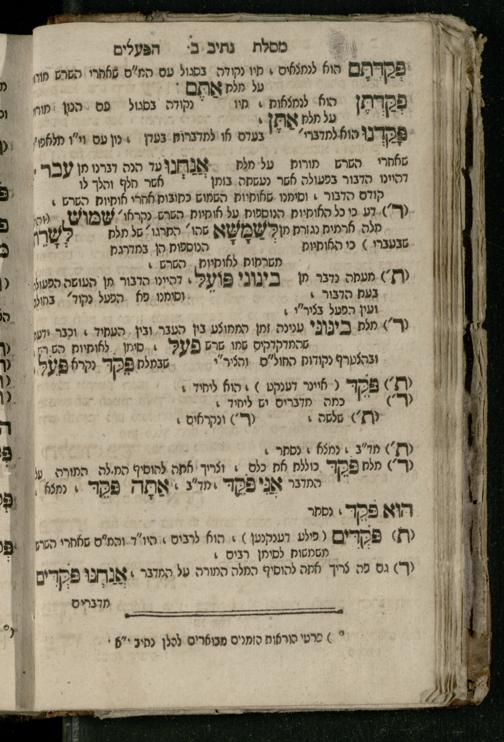 מסלת נתיב ב׳ הפעלים
פְּקַדְתֶּם הוא לנמצאים , תיו נקודה בסגול עם המ״ם שאחרי השרש
על מלת אַתֶּם
פְּקַדְתֶּן הוא לנמצאות , תיו נקודה בסגול עם הנון
על מלת אַתֶּן ,
פָּקַדְנוּ הוא למדברי׳ בעדם או למדברות בעדן , נון עם וי״ו
שאחרי השרש מורות על מלת אֲנַחְנוּ עד הנה דברנו מן עבר ,
דהיינו הדבור בפעולה אשר נעשתה בזמן אשר חלף והלך לו
קודם הדבור , וסימנו שאותיות השמוש כתובות אחרי אותיות השרש ,
(ר׳) דע כי כל האותיות הנוספות על אותיות השרש נקראו׳ שמוש ,
מלה ארמית נגזרת מן לְשַׁמָּשָׁא שהו׳ התרגו׳ של מלת לְשָׁרֵת
שבעברי ) כי האותיות הנוספות הן במדרגת
משרתות לאותיות השרש ,
(ת׳) מעתה נדבר מן בינוני פּוֹעֵל , דהיינו הדבור מן העושה הפעולה
בעת הדבור , וסימנו פא הפעל נקוד׳ בחולם
ועין הפעל בציר״י ,
(ר׳) מלת בֵּינוֹנִי ענינה זמן הממוצע בין העבר ובין העתיד , וכבר ידעת
שהמדקדקים שמו שרש פעל , סימן לאותיות השרש
ובהצטרף נקודות החול״ם והציר״י שבמלת פֹּקֵד נקרא פֹּעֵל ,
(ת׳) פֹּקֵד ( איינר דענקט ) , הוא ליחיד ,
(ר׳) כמה מדברים יש ליחיד ,
(ת׳) שלשה , (ר׳) ונקראים ,
(ת׳) מד״ב , נמצא , נסתר ,
(ר׳) מלת פֹּקֵד כוללת את כלם , וצריך אתה להוסיף המלה המורה על
המדבר אֲנִי פֹּקֵד , מד״ב , אַתָּה פֹּקֵד , נמצא ,
הוּא פֹּקֵד , נסתר
(ת׳) פֹּקְדִים ( פילע דענקנען ) , הוא לרבים , היו״ד והמ״ם שאחרי השרש
משמשות לסימן רבים ,
(ר׳) גם פה צריך אתה להוסיף המלה המורה על המדבר , אֲנַחְנוּ פֹּקְדִים
מדברים
°) פרטי הוראות הזמנים מבוארים להלן נתיב י״א ׳